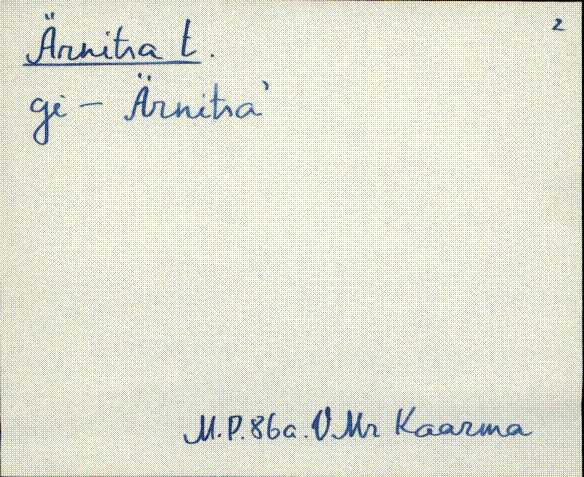 2
Ärnitsa t.
gi – Ärnitsa'
M.P. 86a. VMr Kaarma